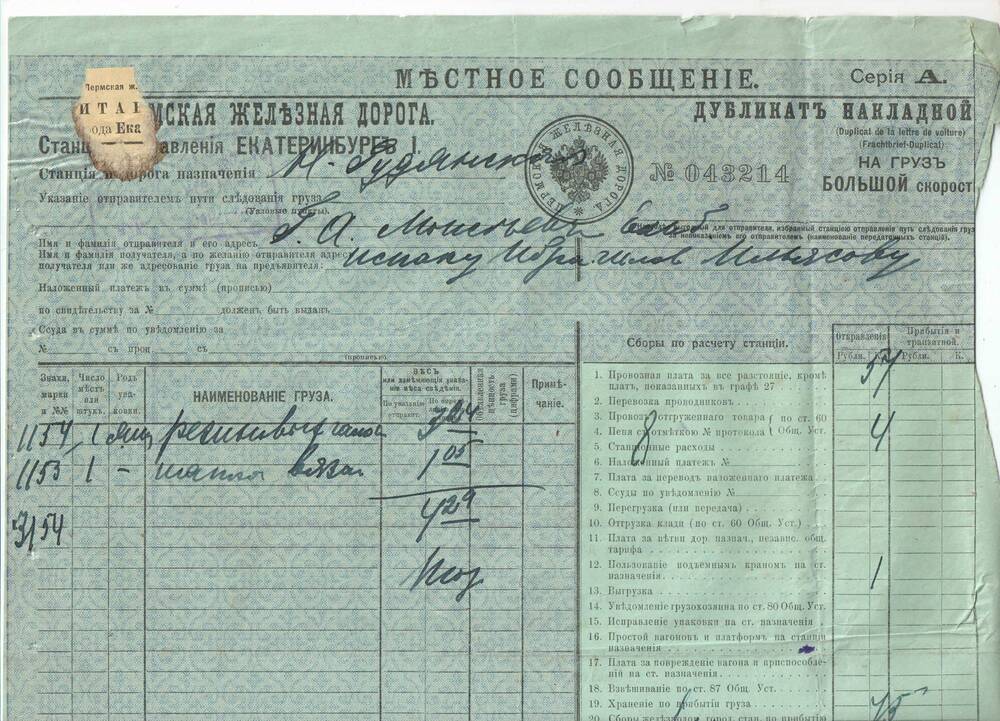 МѢСТНОЕ СООБЩЕНІЕ.
Серія А.
Пермская ж.
ИТАН
ода Ека
МСКАЯ ЖЕЛѢЗНАЯ ДОРОГА.
ДУБЛИКАТЪ НАКЛАДНОЙ
(Duplicat de la lettre de voiture)
(Frachtbrief-Duplicat)
НА ГРУЗЪ
БОЛЬШОЙ скорост
ПЕРМСКАЯ ЖЕЛѢЗНАЯ ДОРОГА
№ 043214
Станц правленія ЕКАТЕРИНБУРГЪ I.
Станція и дорога назначенія
Указаніе отправителемъ пути слѣдованія груза
(Узловые пункты).
для отправителя, избранный станціею отправленія путь слѣдованія груз
за неуказаніемъ его отправителемъ (наименованіе передаточныхъ станцій).
Имя и фамилія отправителя и его адресъ Г. А.
Имя и фамилія получателя, а по желанію отправителя адресъ
получателя или же адресованіе груза на предъявителя: Исхаку Ибрагимов Ильясову
Наложенный платежъ въ суммѣ (прописью)
по свидѣтельству за № долженъ быть выданъ
Ссуда въ суммѣ по увѣдомленію за
№ съ проц. съ
(прописью).
Знаки, марки и №№
Число мѣстъ или штукъ.
Родъ упаковки.
НАИМЕНОВАНІЕ ГРУЗА.
ВѢСЪ
или замѣняющія указаніе вѣса свѣдѣнія.
По указанію отправит.
Объявленная цѣнность груза (цифрами)
Примѣчаніе.
1154 1 ящ резиновых галош 3 24
1153 1 – 1 05
4 29
3154
Сборы по расчету станціи.
Отправленія
Прибытія и транзитной.
Рубли. К. Рубли. К.
1. Провозная плата за все разстояніе, кромѣ
платъ, показанныхъ въ графѣ 27 57
2. Перевозка проводниковъ
3. Провозъ отгруженнаго товара по ст. 60
4. Пеня съ отмѣткою № протокола Общ. Уст. 4
5. Станціонные расходы 8
6. Наложенный платежъ №
7. Плата за переводъ наложеннаго платежа
8. Ссуды по увѣдомленію №
9. Перегрузка (или передача)
10. Отгрузка клади (по ст. 60 Общ. Уст.)
11. Плата за вѣтви дор. назнач., независ. общ.
тарифа
12. Пользованіе подъемнымъ краномъ на ст.
назначенія 1
13. Выгрузка
14. Увѣдомленіе грузохозяина по ст. 80 Общ. Уст.
15. Исправленіе упаковки на ст. назначенія
16. Простой вагоновъ и платформъ на станціи
назначенія
17. Плата за поврежденіе вагона и приспособле-
ній на ст. назначенія
18. Взвѣшиваніе по ст. 87 Общ. Уст.
19. Храненіе по прибытіи груза
20. Сборы желѣзнодор. город. стан. по прибытію